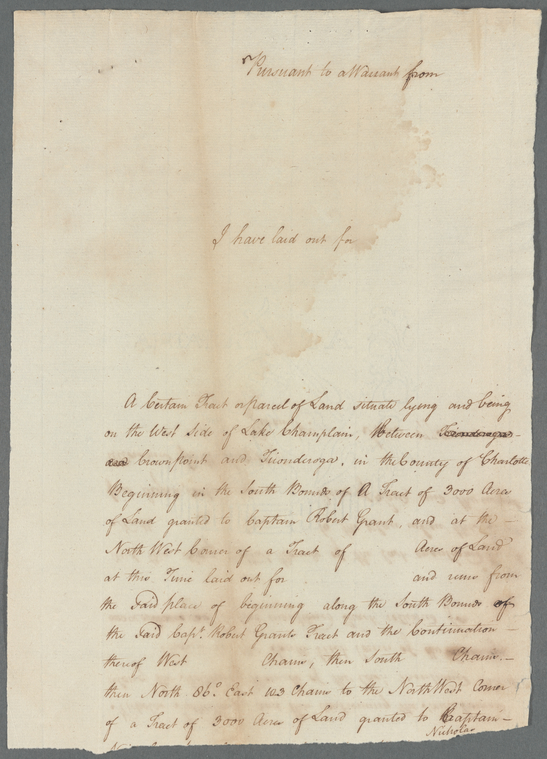 Pursuant to a Warrant from
I have laid out for
A Certain Tract or parcel of Land situate lying and being
on the West Side of Lake Champlain, Between Ticonderoga
and Crown point and Ticonderoga, in the County of Charlotte
Beginning in the South Bounds of A Tract of 3000 Acres
of Land granted to Captain Robert Grant, and at the
North West Corner of a Tract of Acres of Land
at this Time laid out for and runs from
the Said place of beginning along the South Bounds of
the Said Capt. Robert Grants Tract and the Continuation
thereof West Chains, then South Chains,
then North 86° East 103 Chains to the North West Corner
of a Tract of 3000 Acres of Land granted to Captain
Nicholas